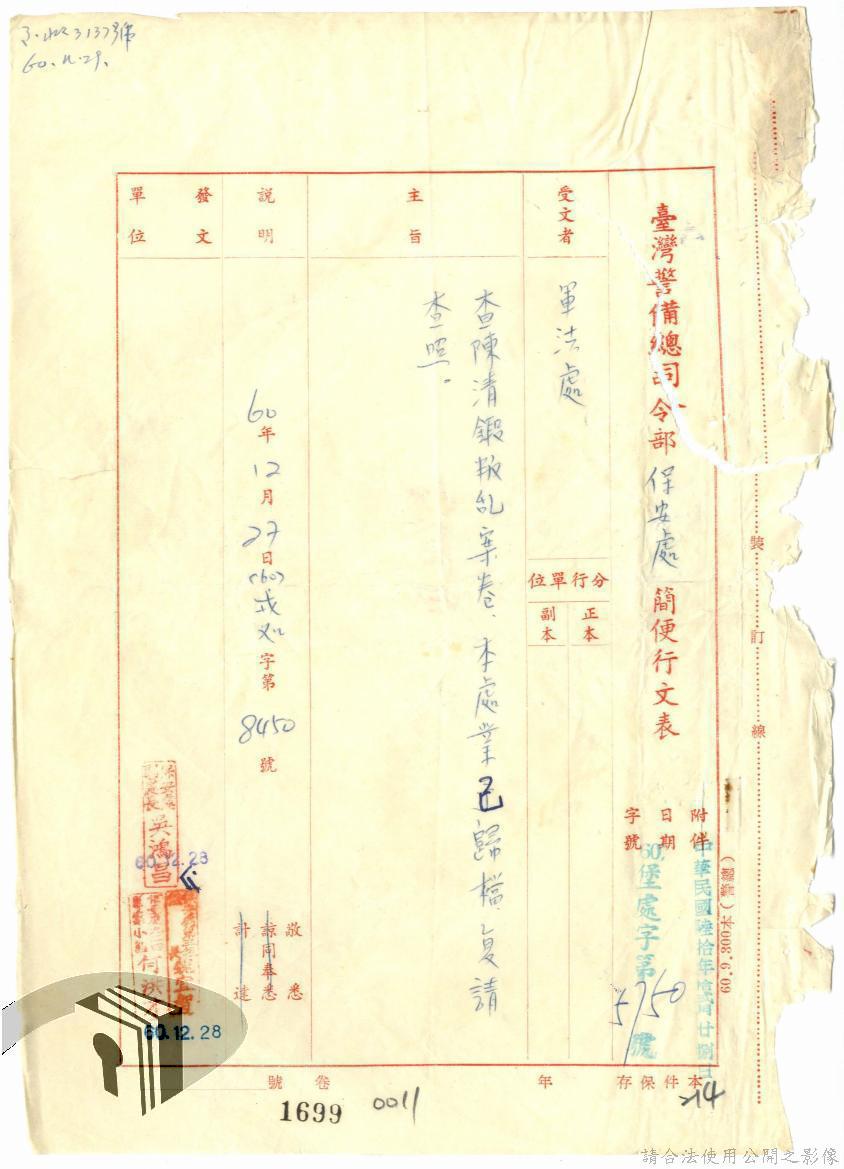 60.12.29.
臺灣警備總司令部保安處簡便行文表
附件
日期
字號
中華民國陸拾年拾貳月廿捌日
60.堡處字第5750號
受文者
軍法處
分行單位
正本
副本
主旨
查陳清鍛叛乱案卷、本處業已歸檔、復請
查照。
說明
60年12月27日(60)戎如字第8450號
敬悉
諒同奉悉
計達
發文單位
吳鴻昌
60.12.28
60.12.28
裝訂線
本件保存
年
卷
號
1699
0011
214
請合法使用公開之影像